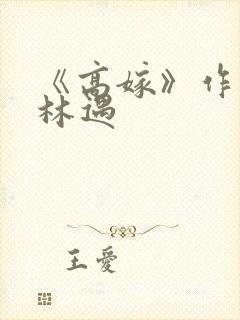 《高嫁》作
林遇
王爱